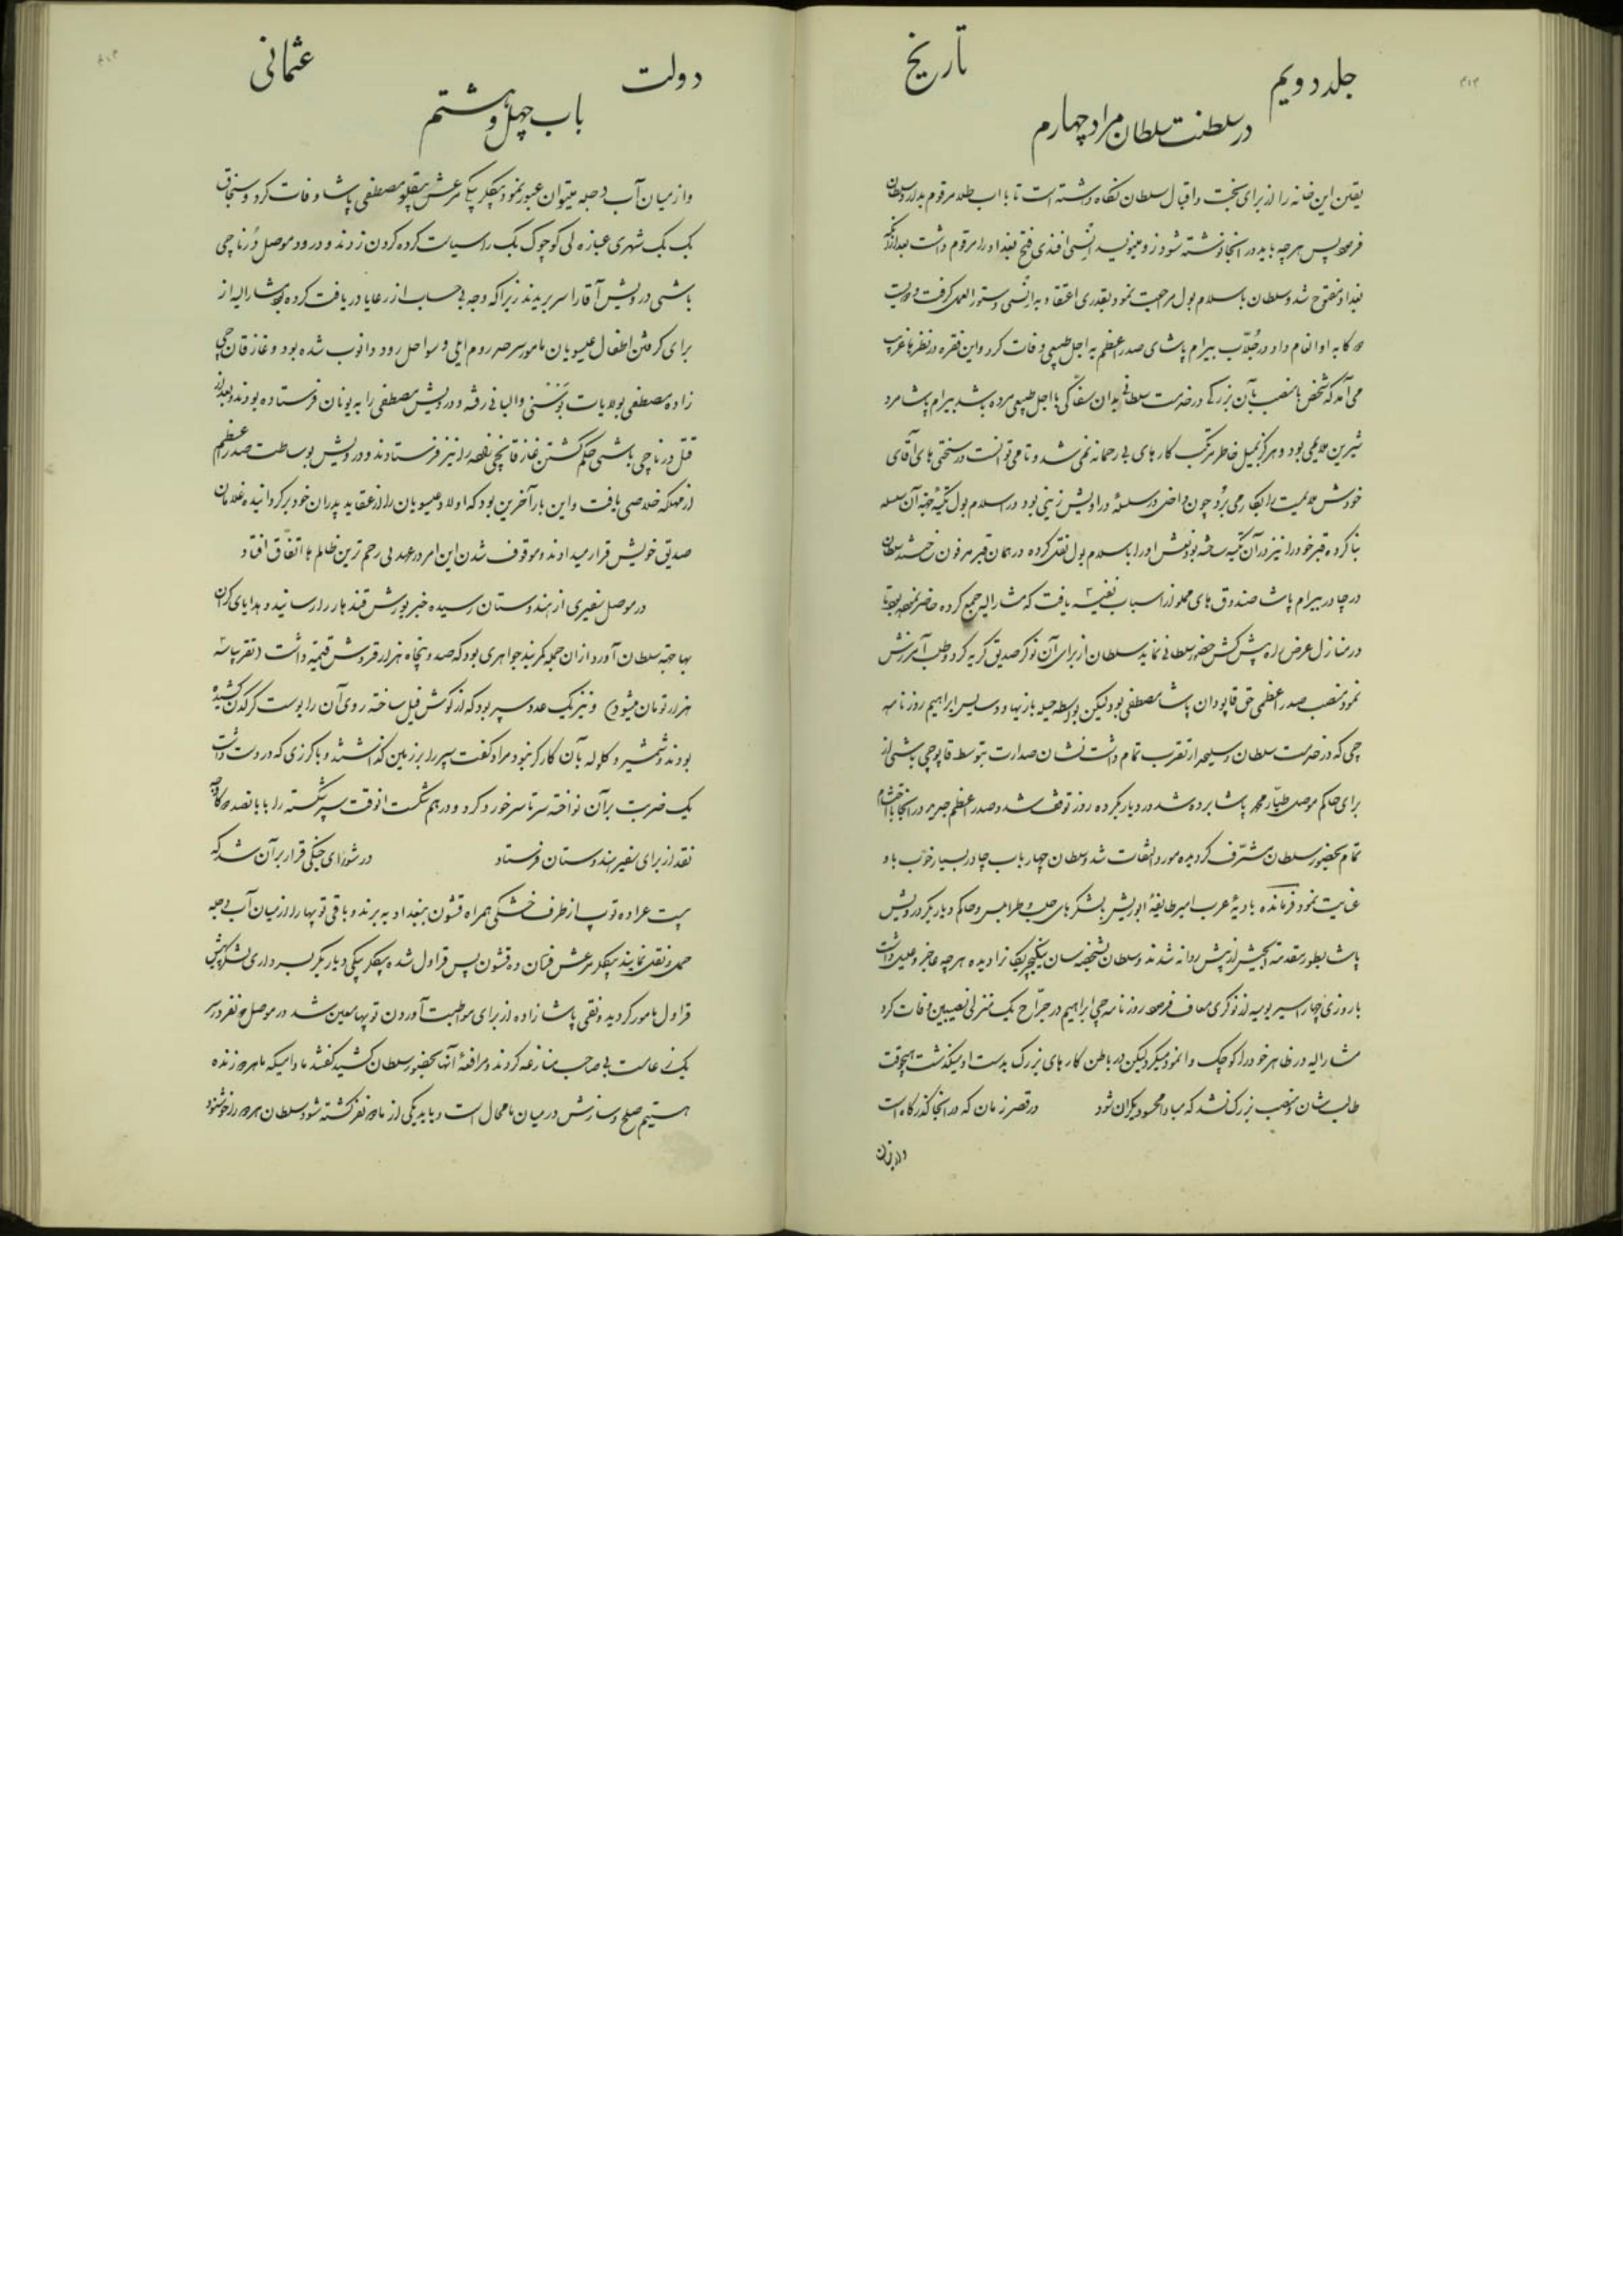 جلد دویم
تاریخ
در سلطنت سلطان مراد چهارم
یقین این خانه را از برای بخت و اقبال سلطان نگاه داشته است تا باب طلا مرقوم بدارد سلطان
فرمود پس هرچه باید در اینجا نوشته شود زود بنویسید انیسی افندی فتح بغداد را مرقوم داشت بعد از آنکه
بغداد مفتوح شد و سلطان باسلامبول مراجعت نمود بقدری اعتقاد به انیسی دستورالعمل گرفت و دویست
سکه به او انعام داد در جلاب بیرام پاشای صدر اعظم به اجل طبیعی وفات کرد و این فقره در نظرها غریب
می آمد که شخص با منصب بآن بزرگی در خدمت سلطانی بدان سفاکی با اجل طبیعی مرده باشد بیرام پاشا مرد
شیرین ملایمی بود و هرگز بمیل خاطر مرتکب کارهای بی رحمانه نمی شد و تا می توانست در سختی های آقای
خودش ملایمت را بکار می برد چون داخل در سلسله دراویش زینی بود در اسلامبول تکیه بجهة آن سلسله
بنا کرده قبر خود را نیز در آن تکیه ساخته بود نعش او را باسلامبول نقل کرده در همان قبر مدفون ساختند سلطان
در چادر بیرام پاشا صندوق های مملو از اسباب نفیسه یافت که مشارالیه جمع کرده حاضر نموده بود تا
در منازل عرض راه پیش کش حضور سلطانی نماید سلطان از برای آن نوکر صدیق گریه کرد و طلب آمرزش
نمود منصب صدر اعظمی حق قاپودان پاشا مصطفی بود لیکن بواسطه حیله بازیها و دسایس ابراهیم روزنامه
چی که در خدمت سلطان و سلیحدار تقرب تمام داشت نشان صدارت بتوسط قاپوچی باشی از
برای حاکم موصل طیار محمد پاشا برده شد در دیاربکر ده روز توقف شد و صدر اعظم جدید در آنجا با احتشام
تمام بحضور سلطان مشرف گردیده مورد التفات شد و سلطان چهار باب چادر بسیار خوب باو
عنایت نمود فرمانده بادیه عرب امیر طایفه ابوریش بلشکرهای حلب و طرابلس و حاکم دیاربکر درویش
پاشا بطور مقدمة الجیش از پیش روانه شدند و سلطان بشخصه سان ینکیچریها را دیده هرچه عاجز و علیل داشت
با روزی چهار اسیر یومیه از نوکری معاف فرمود روزنامه چی ابراهیم در جراح یک منزلی نصیبین وفات کرد
مشارالیه در ظاهر خود را کوچک وانمود میکرد لیکن در باطن کارهای بزرگ بدست او میگذشت هیچوقت
طالب شان و منصب بزرگ نشد که مبادا محسود دیگران شود در قصر زمان که در آنجا گذرگاه است
دولت
عثمانی
باب چهل و هشتم
و از میان آب دجله میتوان عبور نمود بیکلر بیکی مرعش بیقلو مصطفی پاشا وفات کرد و سنجاق
بک بک شهری عبازه لی کوچوک بک را سیاست کرده گردن زدند و در ورود موصل زرناچی
باشی درویش آقا را سر بریدند زیرا که وجه بی حساب از رعایا دریافت کرده بود مشارالیه از
برای گرفتن اطفال عیسویان مامور سرحد روم ایلی و سواحل رود دانوب شده بود و غازقانچی
زاده مصطفی بولایات بوسنی و البانی رفته و درویش مصطفی را به یونان فرستاده بودند بعد از
قتل زرناچی باشی حکم کشتن غازقانچی زاده را نیز فرستادند و درویش بوساطت صدر اعظم
از مهلکه خلاصی یافت و این بار آخرین بود که اولاد عیسویان را از عقاید پدران خود برگردانیده غلامان
صدیق خویش قرار میدادند و موقوف شدن این امر در عهد بی رحم ترین ظالم ها اتفاق افتاد
در موصل سفیری از هندوستان رسیده خبر یورش قندهار را رسانید و هدایای گران
بها بجهة سلطان آورد از آن جمله کمربند جواهری بود که صد و پنجاه هزار قروش قیمت داشت (تقریبا سه
هزار تومان میشود) و نیز یک عدد سپر بود که از گوش فیل ساخته روی آن را پوست کرگدن کشیده
بودند و شمشیر و گلوله بآن کارگر نبود مراد گفت سپر را بر زمین گذاشتند و با گرزی که در دست داشت
یک ضربت بر آن نواخته سرتاسر خورد کرد و درهم شکست آنوقت سپر شکسته را با پانصد
نقد از برای سفیر هندوستان فرستاد در شورای جنگی قرار بر آن شد که
بیست عراده توپ از طرف خشکی همراه قشون ببغداد به برند و باقی توپها را از میان آب دجله
حمل و نقل نمایند بیکلر مرعش فتان ده قشون پس قراول شده بیکلر بیکی دیاربکر بسرداری لشکر پیش
قراول مامور گردید و نقی پاشا زاده از برای مواظبت آوردن توپها معین شد در موصل دو نفر در سر
یک زعامت بی صاحب منازعه کردند و مرافعه آنها بحضور سلطان کشید گفتند مادامیکه ما هر دو زنده
هستیم صلح و سازش در میان ما محال است و باید یکی از ما دو نفر کشته شود سلطان هر دو را خوشنود